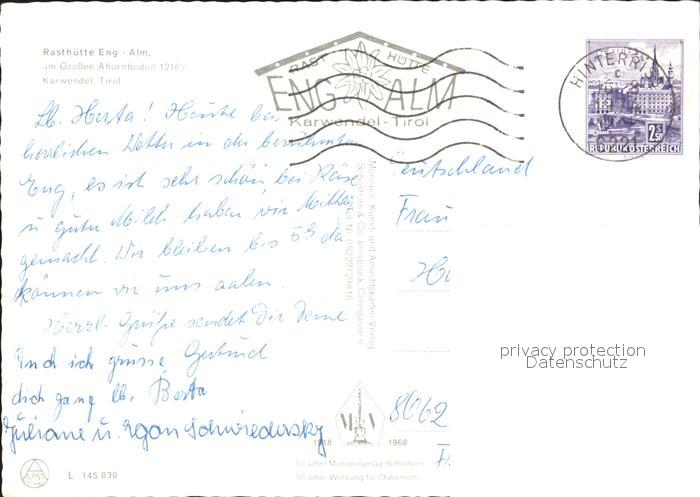 Rasthütte Eng - Alm,
am Großen Ahornboden 1216 m
Karwendel, Tirol
RAST HÜTTE
ENG ALM
Karwendel - Tirol
HINTERRI
REPUBLIK ÖSTERREICH
2.50
Lb. Herta! Heute bei
herrlichem Wetter in der berühmten
Eng, es ist sehr schön bei Käse
u. guter Milch haben wir Mittag
gemacht. Wir bleiben bis da
können wir uns aalen.
Herzl. Grüße sendet Dir Deine
Gertrud
Auch ich grüsse
dich ganz lb. Berta
Juliane u. Egon Schwiedersky
Deutschland
Frau
8062
privacy protection
Datenschutz
1918 1968
50 Jahre Monopolverlag Schöllhorn
50 Jahre Werbung für Österreich
L 145 030